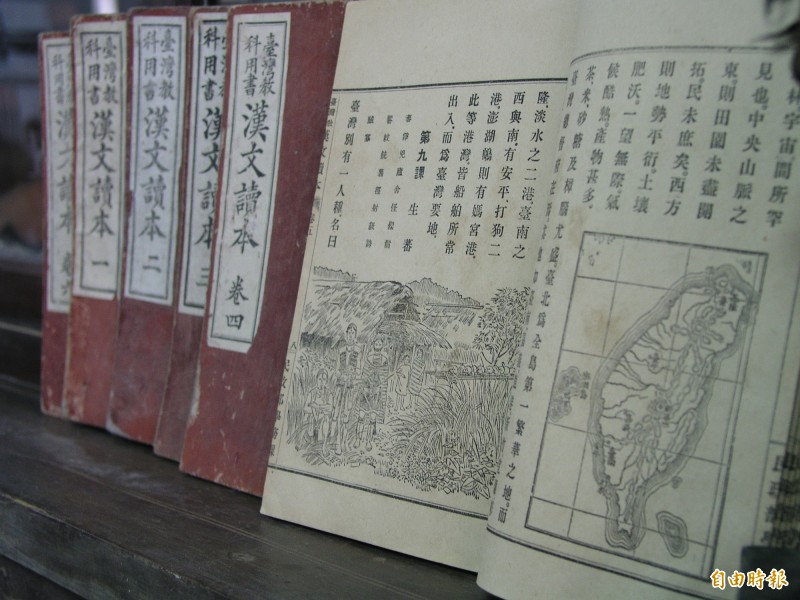 臺灣教
科用書
漢文讀本
臺灣教
科用書
漢文讀本 一
臺灣教
科用書
漢文讀本 二
科用書
漢文讀本 三
臺灣教
科用書
漢文讀本 卷四
林宇宙間所罕
見也。中央山脈之
東則田園未盡開
拓民未庶矣。西方
則地勢平衍。土壤
肥沃。一望無際。氣
候酷熱。產物甚多。
茶、米、砂糖及樟腦尤盛。臺北爲全島第一繁華之地。而
隆、淡水之二港。臺南之
西與南、有安平、打狗二
港。澎湖島則有媽宮港。
此等港灣、皆船舶所常
出入。而爲臺灣要地。
第九課 生蕃
臺灣別有一人種。名曰
自由時報